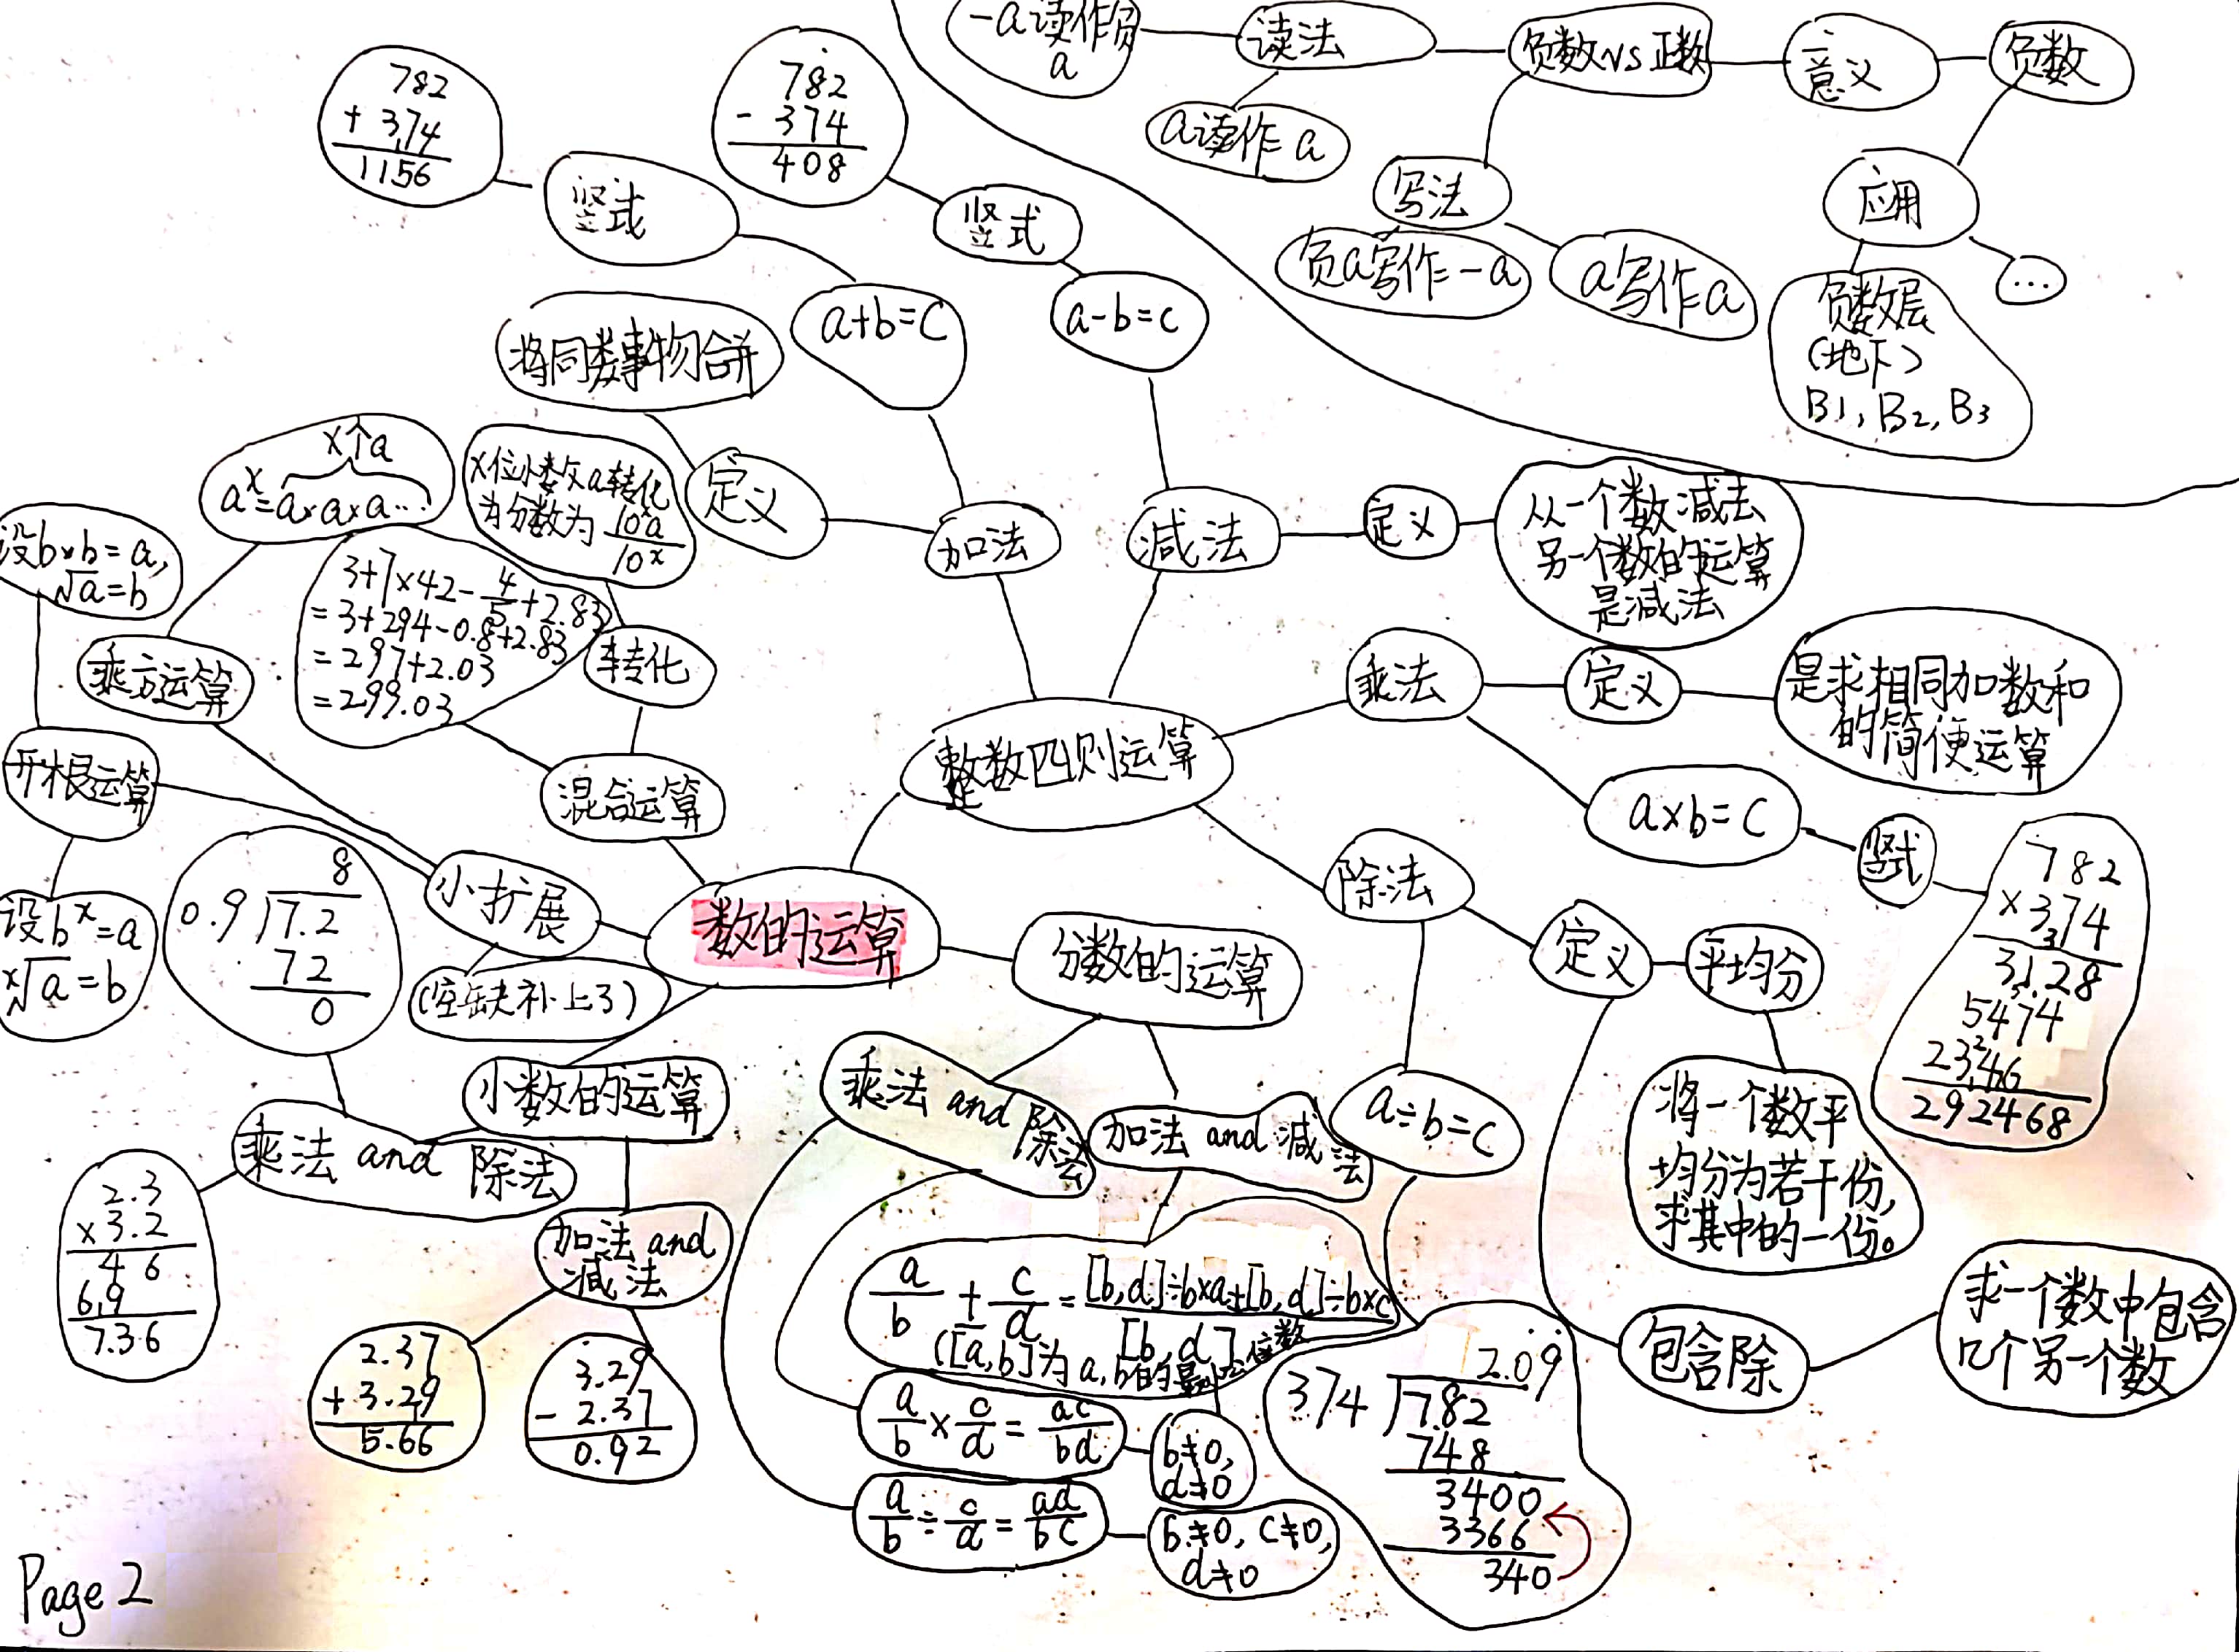 -a读作负
a
读法
负数VS正数
意义
负数
a读作a
写法
应用
负a写作-a
a写作a
...
负数层
(地下)
B1, B2, B3
782
+ 374
1156
782
- 374
408
竖式
竖式
a+b=c
a-b=c
将同类事物合并
定义
加法
减法
定义
从一个数减去
另一个数的运算
是减法
x个a
a^x=a×a×a...
x位小数a转化
为分数为 10^x a / 10^x
设b×b=a,
√a=b
3+7×42-4/5+2.83
=3+294-0.8+2.83
=297+2.03
=299.03
转化
乘方运算
开根运算
混合运算
整数四则运算
乘法
定义
是求相同加数和
的简便运算
a×b=c
竖式
782
×374
3128
5474
2346
292468
设b^x=a
x√a=b
8
0.9 7.2
72
0
小扩展
(空缺补上了)
数的运算
分数的运算
除法
定义
平均分
将一个数平
均分为若干份,
求其中的一份。
小数的运算
乘法 and 除法
2.3
×3.2
46
69
7.36
加法 and
减法
2.37
+3.29
5.66
3.29
- 2.37
0.92
乘法 and 除法
加法 and 减法
a÷b=c
a/b ± c/d = [b,d]÷b×a±[b,d]÷b×c / [b,d]
([a,b]为a,b的最小公倍数
a/b × c/d = ac/bd
b≠0,
d≠0
a/b ÷ c/d = ad/bc
b≠0, c≠0,
d≠0
2.09
374 782
748
3400
3366
340
包含除
求一个数中包含
几个另一个数
Page 2